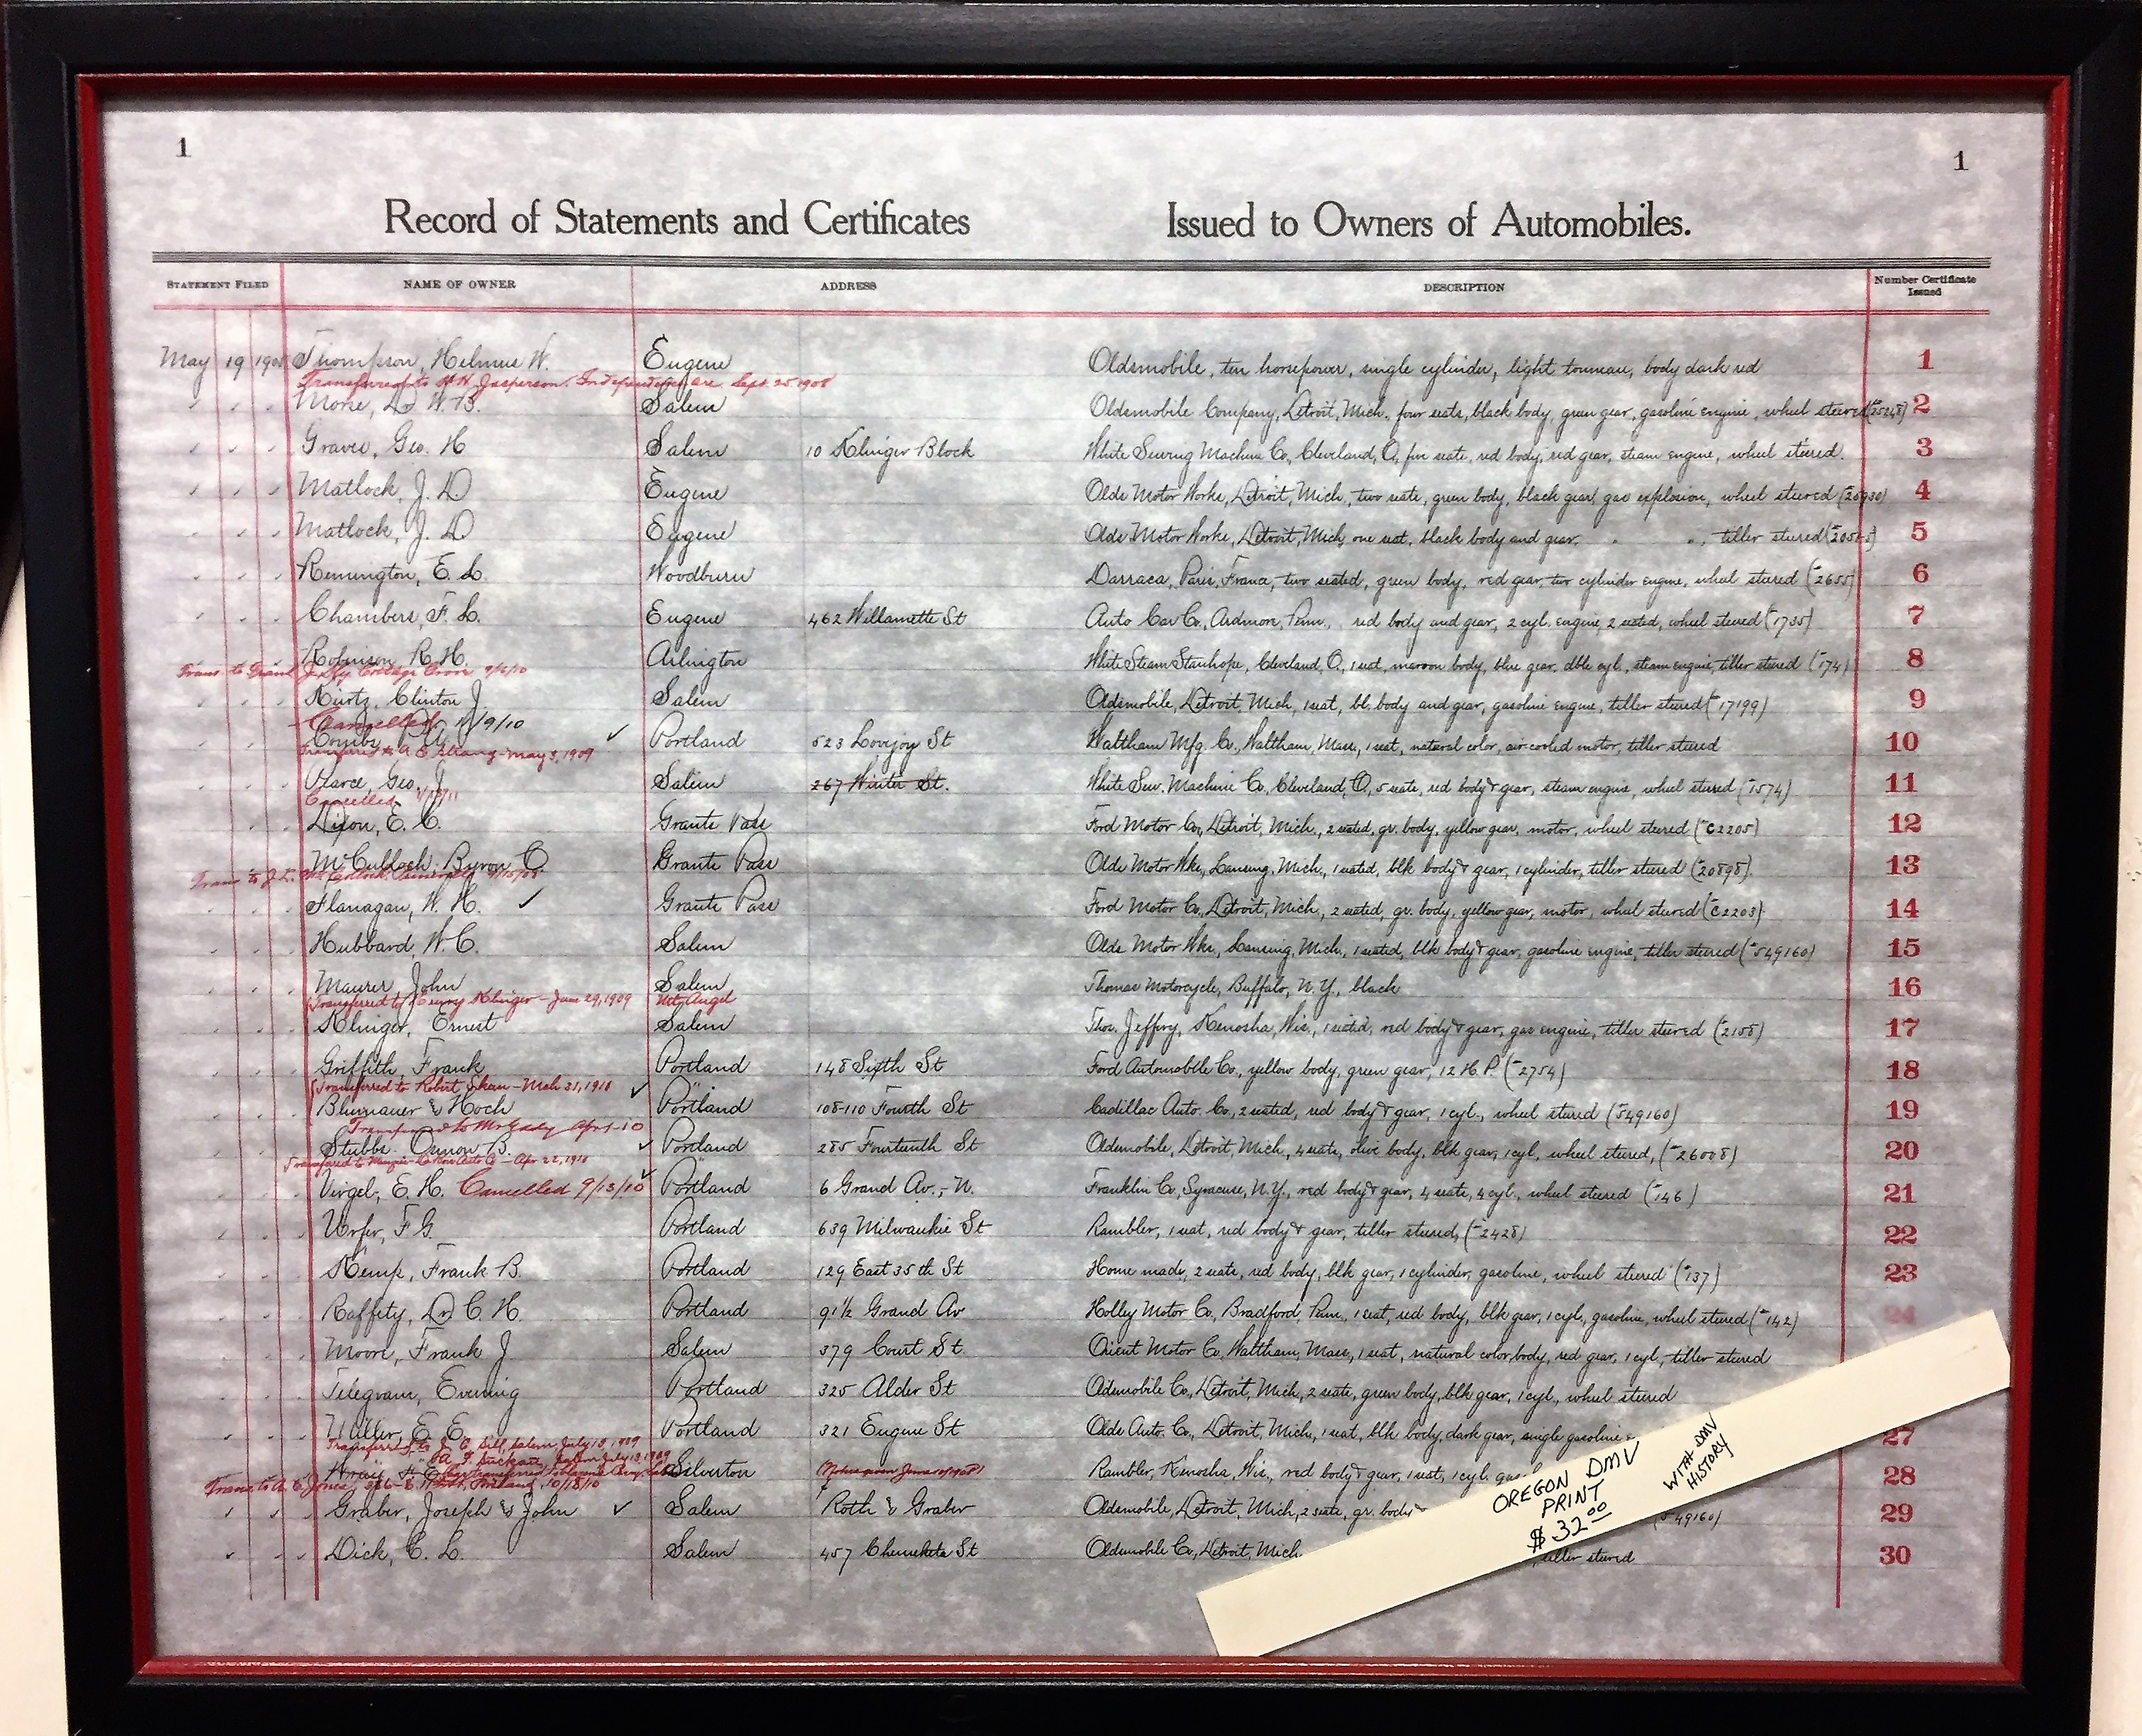 1 1
Record of Statements and Certificates Issued to Owners of Automobiles.
STATEMENT FILED NAME OF OWNER ADDRESS DESCRIPTION Number Certificate Issued
May 19 Thompson, Helmus W. Eugene Oldsmobile, ten horsepower, single cylinder, light tonneau, body dark red 1
Transferred to H. H. Jasperson. Independence, Ore. Sept. 25 1908
Dr W. B. Salem Oldsmobile Company, Detroit, Mich. four seats, black body, green gear, gasoline engine, wheel steered 2
Graves, Geo. H Salem 10 Klinger Block White Sewing Machine Co, Cleveland, O, seats, red body, red gear, steam engine, wheel steered. 3
Matlock, J. D Eugene Olds Motor Works, Detroit, Mich, two seats, green body, black gear, gas explosion, wheel steered 4
Matlock, J. D Eugene Olds Motor Works, Detroit, Mich, one seat, black body and gear, " ", tiller steered 5
Remington, E. L. Woodburn Darraca, Paris, France, two seated, green body, red gear, two cylinder engine, wheel steered (#2655) 6
Chambers, F. L. Eugene 462 Willamette St Auto Car Co., Ardmore, Penn., red body and gear, 2 cyl. engine, 2 seated, wheel steered (#1735) 7
Robinson R. H. Arlington White Steam Stanhope, Cleveland, O., 1 seat, maroon body, blue gear, dble cyl., steam engine, tiller steered (#174) 8
Trans to Cottage Grove
Kurtz, Clinton J Salem Oldsmobile, Detroit, Mich, 1 seat, bl. body and gear, gasoline engine, tiller steered (#17199) 9
Cancelled 1/9/10
Portland 523 Lovejoy St Waltham Mfg. Co., Waltham, Mass., 1 seat, natural color, air cooled motor, tiller steered 10
Transferred to May 3, 1909
Pearce, Geo. J Salem 267 Winter St. White Sew. Machine Co, Cleveland, O, 5 seats, red body & gear, steam engine, wheel steered (#1574) 11
Cancelled
Dixon, E. C. Grants Pass Ford Motor Co, Detroit, Mich., 2 seated, gr. body, yellow gear, motor, wheel steered (#C2205) 12
McCulloch Byron O Grants Pass Olds Motor Wks, Lansing, Mich., 1 seated, blk body & gear, 1 cylinder, tiller steered (#20898) 13
Trans to J. L.
Flanagan, W. H. Grants Pass Ford Motor Co, Detroit, Mich., 2 seated, gr. body, yellow gear, motor, wheel steered (#C2203) 14
Hubbard, W. C. Salem Olds Motor Wks, Lansing, Mich., 1 seated, blk body & gear, gasoline engine, tiller steered (#549160) 15
Maurer, John Salem Thomas Motorcycle, Buffalo, N.Y., black 16
Transferred to Henry Klinger - June 29, 1909 Mt. Angel
Klinger, Ernest Salem Thos. Jeffrey, Kenosha, Wis, 1 seated, red body & gear, gas engine, tiller steered (#2155) 17
Griffith, Frank Portland 148 Sixth St Ford Automobile Co., yellow body, green gear, 12 H.P. (#2754) 18
Transferred to Robert Skeen - Mch 31, 1910
Blumauer & Hoch Portland 108-110 Fourth St Cadillac Auto. Co., 2 seated, red body & gear, 1 cyl., wheel steered (#549160) 19
Transferred to Apr 1-10
Stubbs, Ormon B. Portland 285 Fourteenth St Oldsmobile, Detroit, Mich., 4 seats, olive body, blk gear, 1 cyl., wheel steered, (#26008) 20
Transferred to Auto Co - Apr 22, 1910
Virgel, E. H. Cancelled 9/13/10 Portland 6 Grand Av., N. Franklin Co, Syracuse, N.Y., red body & gear, 4 seats, 4 cyl., wheel steered (#146) 21
Urfer, F G. Portland 639 Milwaukie St Rambler, 1 seat, red body & gear, tiller steered, (#2428) 22
Kemp, Frank B. Portland 129 East 35th St Home made, 2 seats, red body, blk gear, 1 cylinder, gasoline, wheel steered (#137) 23
Raffety, Dr C. H. Portland 91½ Grand Av Holley Motor Co, Bradford, Penn., 1 seat, red body, blk gear, 1 cyl, gasoline, wheel steered (#142) 24
Moore, Frank J Salem 379 Court St. Orient Motor Co, Waltham, Mass., 1 seat, natural color body, red gear, 1 cyl, tiller steered
Telegram, Evening Portland 325 Alder St Oldsmobile Co, Detroit, Mich, 2 seats, green body, blk gear, 1 cyl., wheel steered
Miller, E. E. Portland 321 Eugene St Olds Auto. Co., Detroit, Mich, 1 seat, blk body, dark gear, single gasoline 27
Transferred to J. C. Sill, Salem July 13, 1909
Silverton Rambler, Kenosha, Wis., red body & gear, 1 seat, 1 cyl. 28
Trans. to A. C. Jones, Portland, 10/18/10
Graber, Joseph & John Salem Roth & Graber Oldsmobile, Detroit, Mich, 2 seats, gr. body 49160) 29
Dick, C. L. Salem 457 Chemeketa St Oldsmobile Co, Detroit, Mich. tiller steered 30
OREGON DMV
PRINT
$32.00
WITH DMV
HISTORY